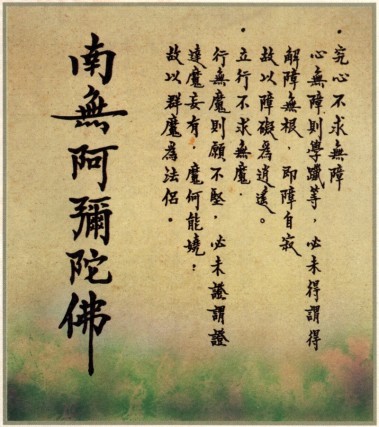 ・究心不求無障
心無障則學躐等，必未得謂得
解障無根，即障自寂
故以障礙為逍遙。
・立行不求無魔・
行無魔則願不堅，必未證謂證
達魔妄有，魔何能嬈；
故以群魔為法侶。
南無阿彌陀佛